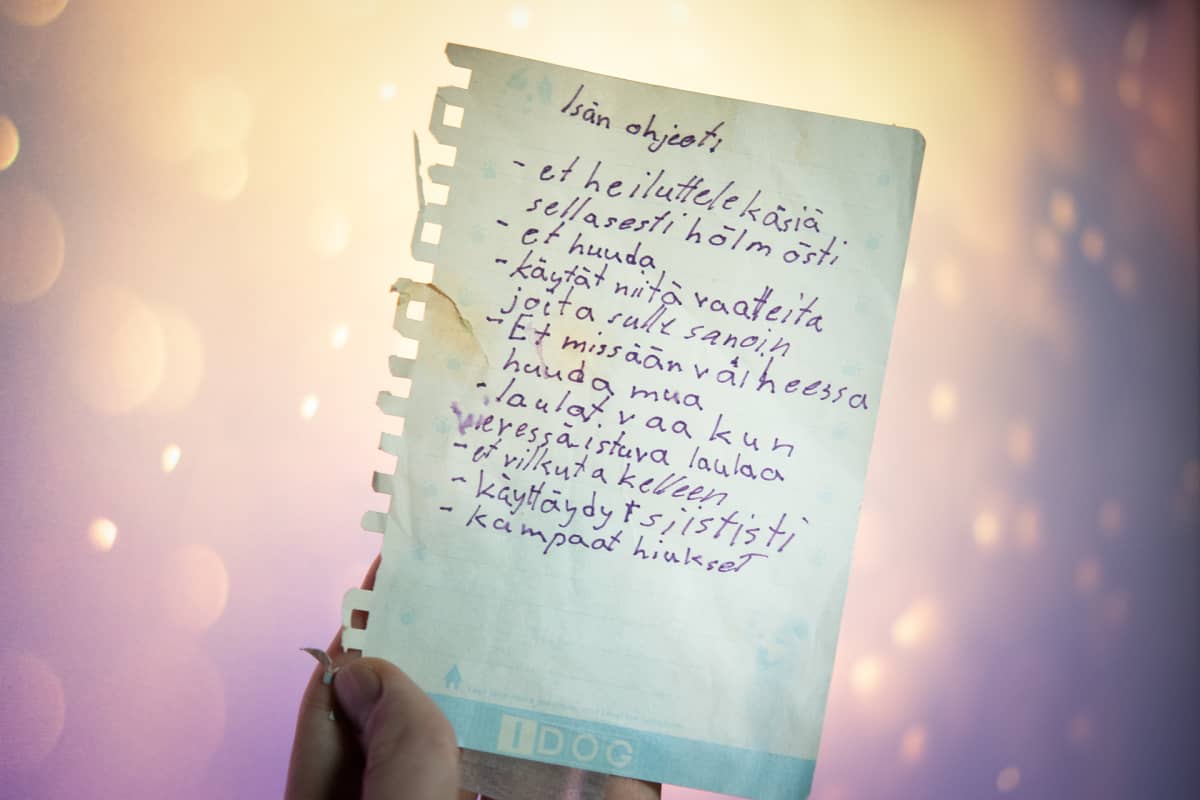 Isän ohjeet:
- et heiluttele käsiä
sellasesti hölmösti
- et huuda
- käytät niitä vaatteita
joita sulle sanoin
- Et missään vaiheessa
huuda mua
- laulat vaa kun
eressä istuva laulaa
- et vilkuta kelleen
- käyttäydyt siististi
- kampaat hiukset
IDOG